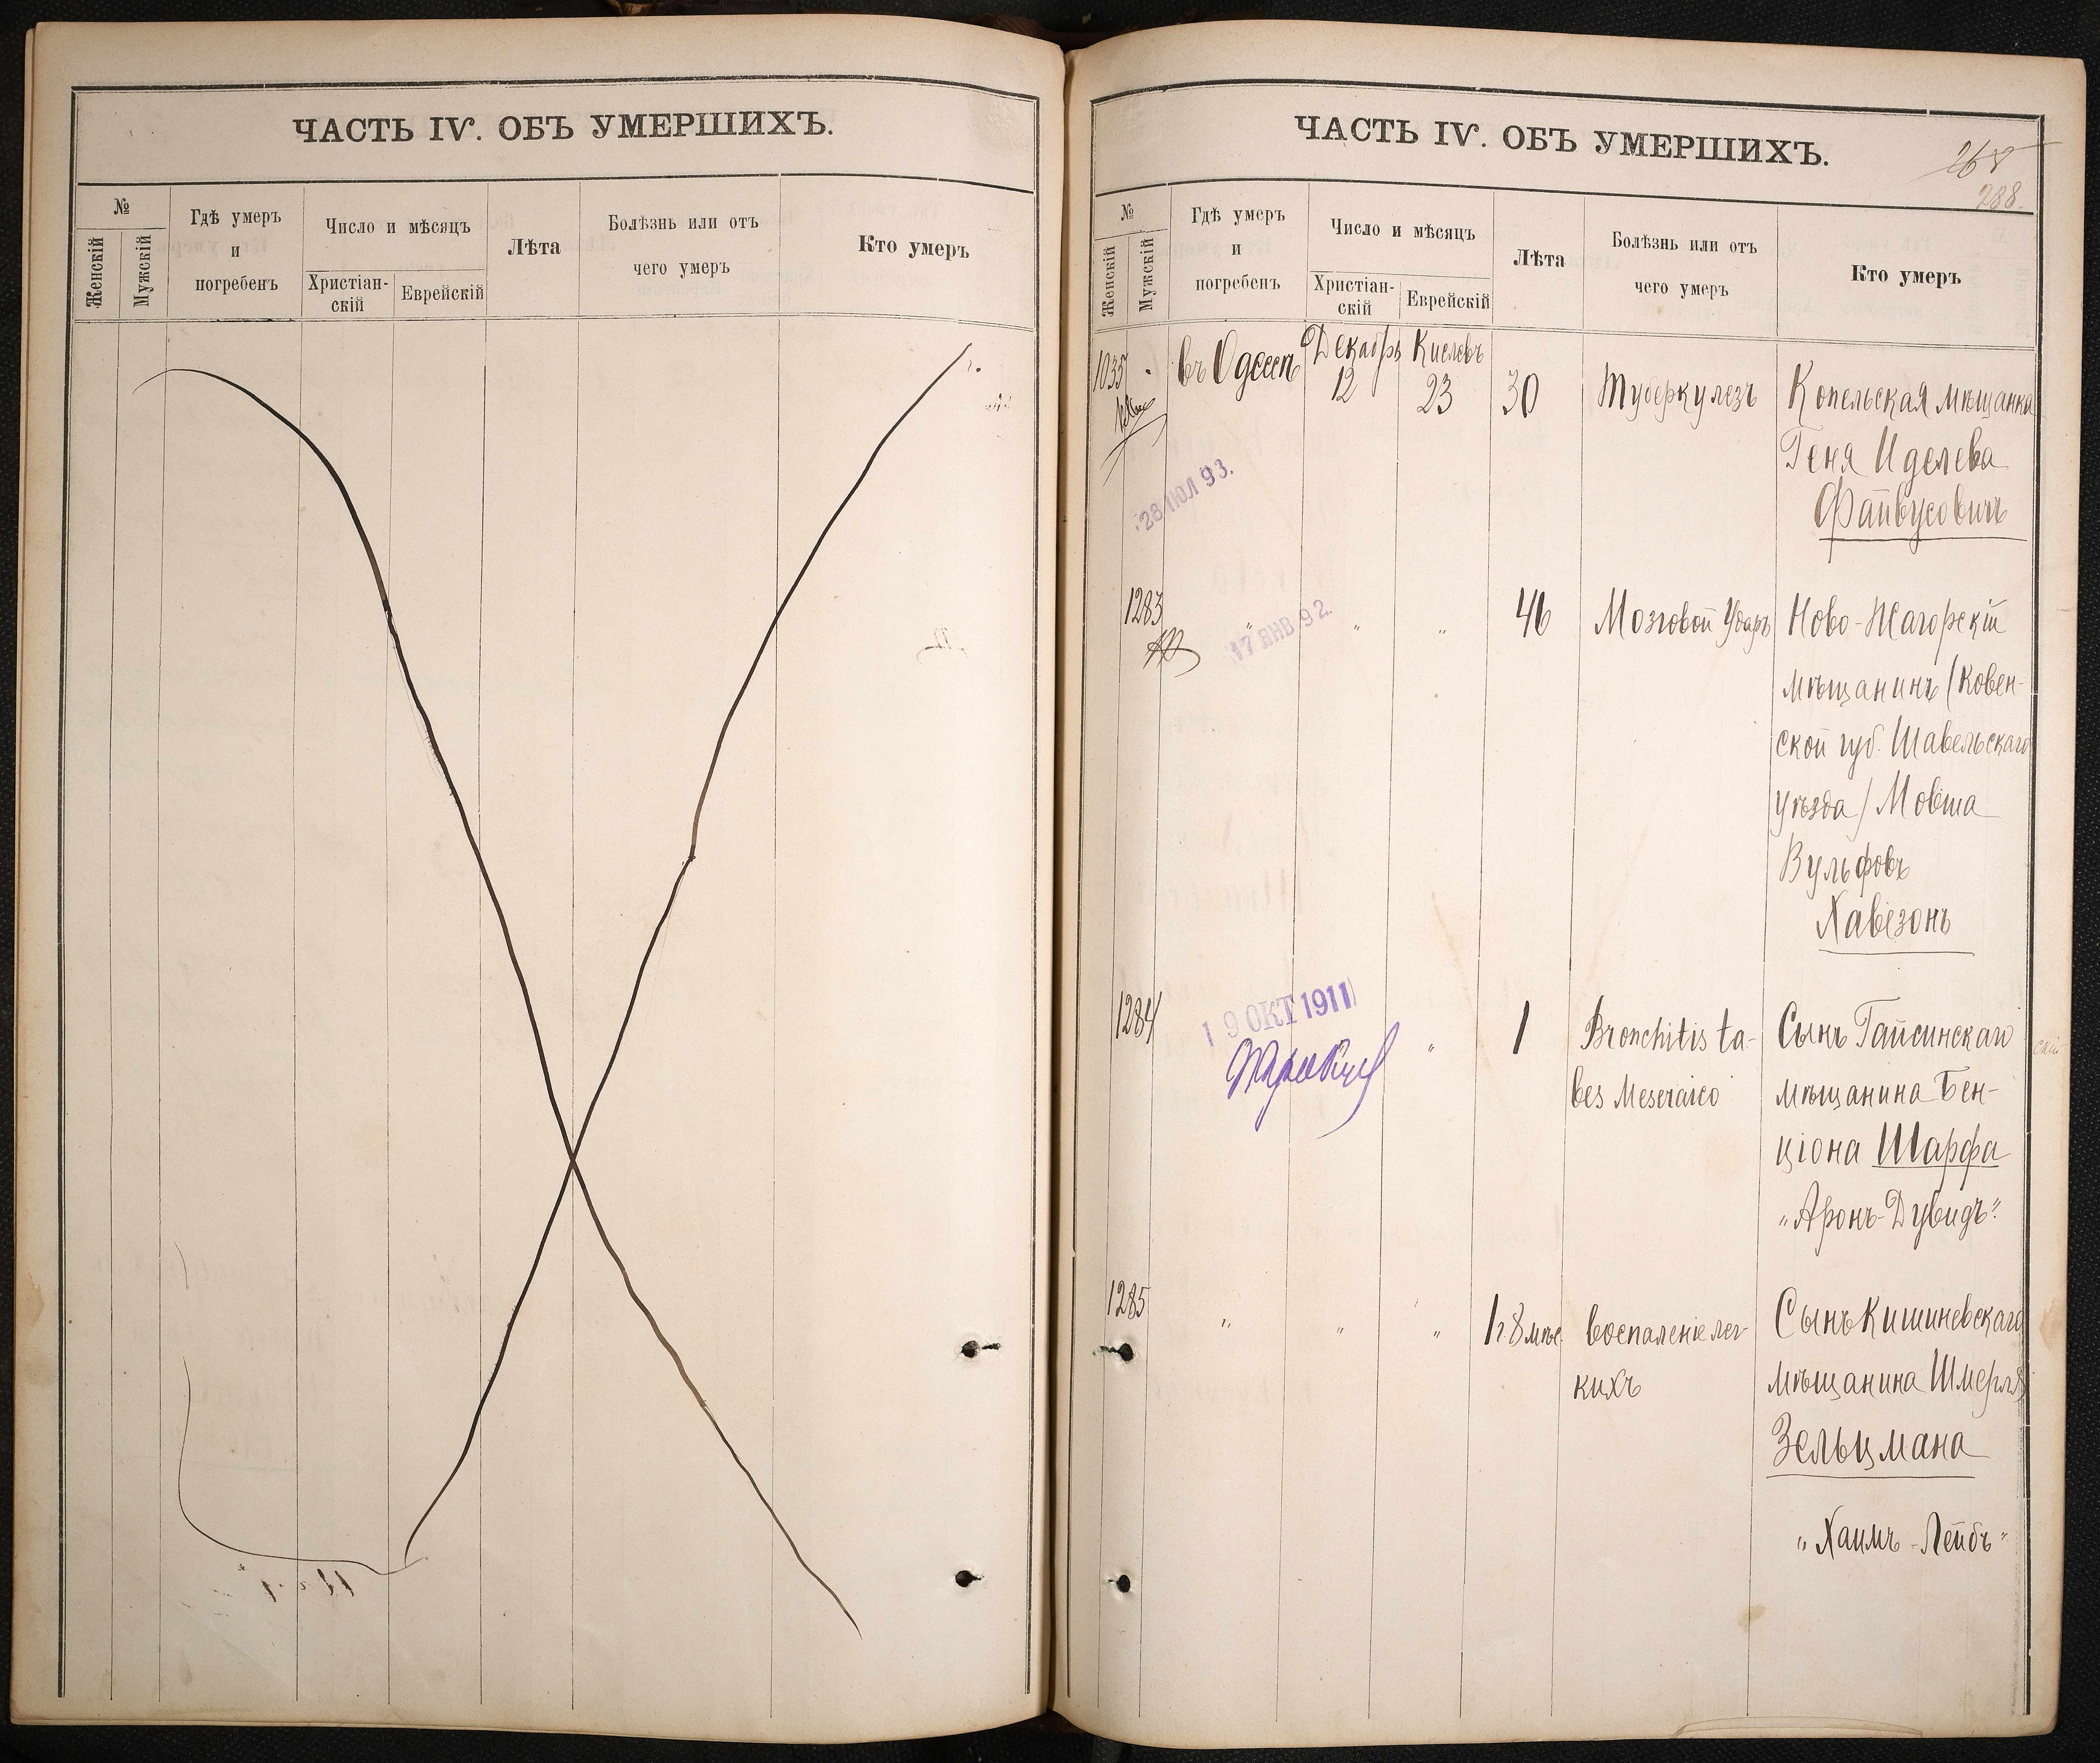 ЧАСТЬ IV. ОБЪ УМЕРШИХЪ.
№
Женскій
Мужскій
Гдѣ умеръ
и
погребенъ
Число и мѣсяцъ
Христіан-
скій
Еврейскій
Лѣта
Болѣзнь или отъ
чего умеръ
Кто умеръ
ЧАСТЬ IV. ОБЪ УМЕРШИХЪ.
268
288.
№
Женскій
Мужскій
Гдѣ умеръ
и
погребенъ
Число и мѣсяцъ
Христіан-
скій
Еврейскій
Лѣта
Болѣзнь или отъ
чего умеръ
Кто умеръ
1035 въ Одессѣ Декабрь 12 Кислевъ 23 30 Туберкулезъ Копельская мѣщанка
Геня Иделева
Файвусовичъ
28 ІЮЛ 93.
1283 " " " 46 Мозговой Ударъ Ново-Жагорскій
17 ЯНВ 92.
мѣщанинъ (Ковен-
ской губ. Шавельскаго
уѣзда) Мовша
Вульфовъ
Хавезонъ
1284 19 ОКТ 1911 " 1 Bronchitis ta- Сынъ Гайсинскаго
bes Meseraico мѣщанина Бен-
ціона Шарфа
"Аронъ-Дувидъ".
1285 " " " 1 г 8 мѣс воспаленіе лег- Сынъ Кишиневскаго
кихъ мѣщанина Шмерля
Зельцмана
"Хаимъ-Лейбъ"